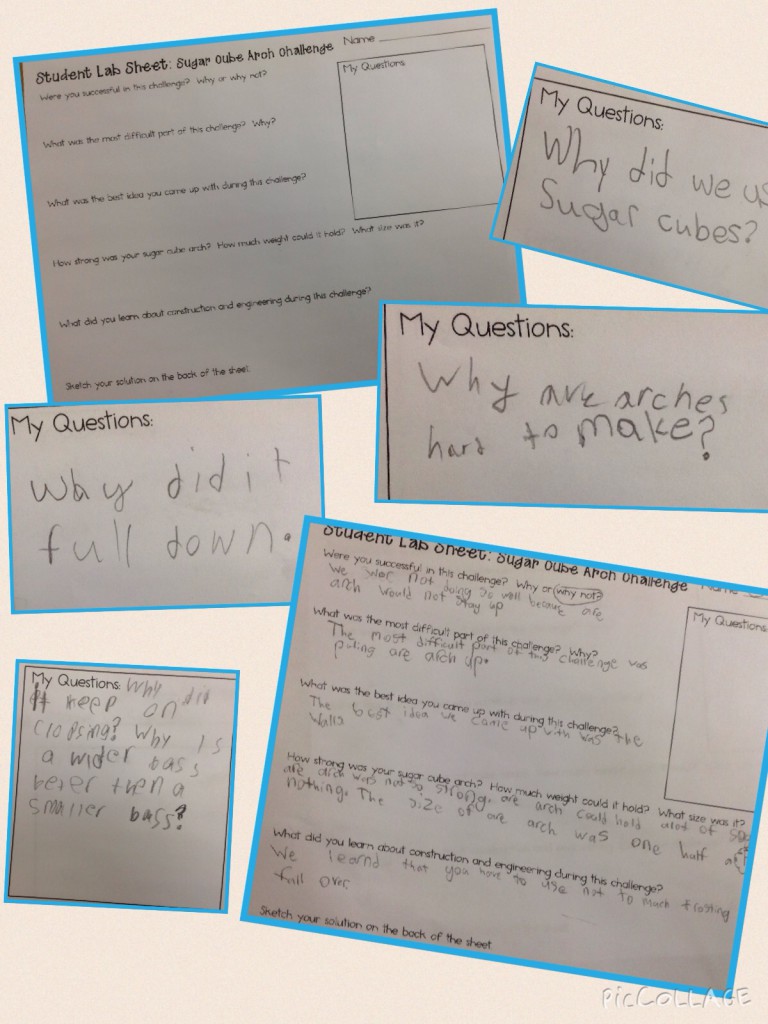 Student Lab Sheet: Sugar Cube Arch Challenge
Name
Were you successful in this challenge? Why or why not?
My Questions
What was the most difficult part of this challenge? Why?
What was the best idea you came up with during this challenge?
How strong was your sugar cube arch? How much weight could it hold? What size was it?
What did you learn about construction and engineering during this challenge?
Sketch your solution on the back of the sheet.
My Questions:
Why did we us
Sugar cubes?
My Questions:
Why are arches
hard to make?
My Questions:
Why did it
full down.
My Questions: Why did
it keep on
clopsing? Why is
a wider bass
beter then a
smaller bass?
Student Lab Sheet: Sugar Cube Arch Challenge
Name
Were you successful in this challenge? Why or why not?
We wer not doing so well because are
arch would not stay up
My Questions
What was the most difficult part of this challenge? Why?
The most difficult part of this challenge was
puting are arch up.
What was the best idea you came up with during this challenge?
The best idea we came up with was the
walls
How strong was your sugar cube arch? How much weight could it hold? What size was it?
are arch was not so strong. are arch could hold alot of
nothing. The size of are arch was one half
What did you learn about construction and engineering during this challenge?
We learnd that you have to use not to much frosting
fall over
Sketch your solution on the back of the sheet
PicCollage